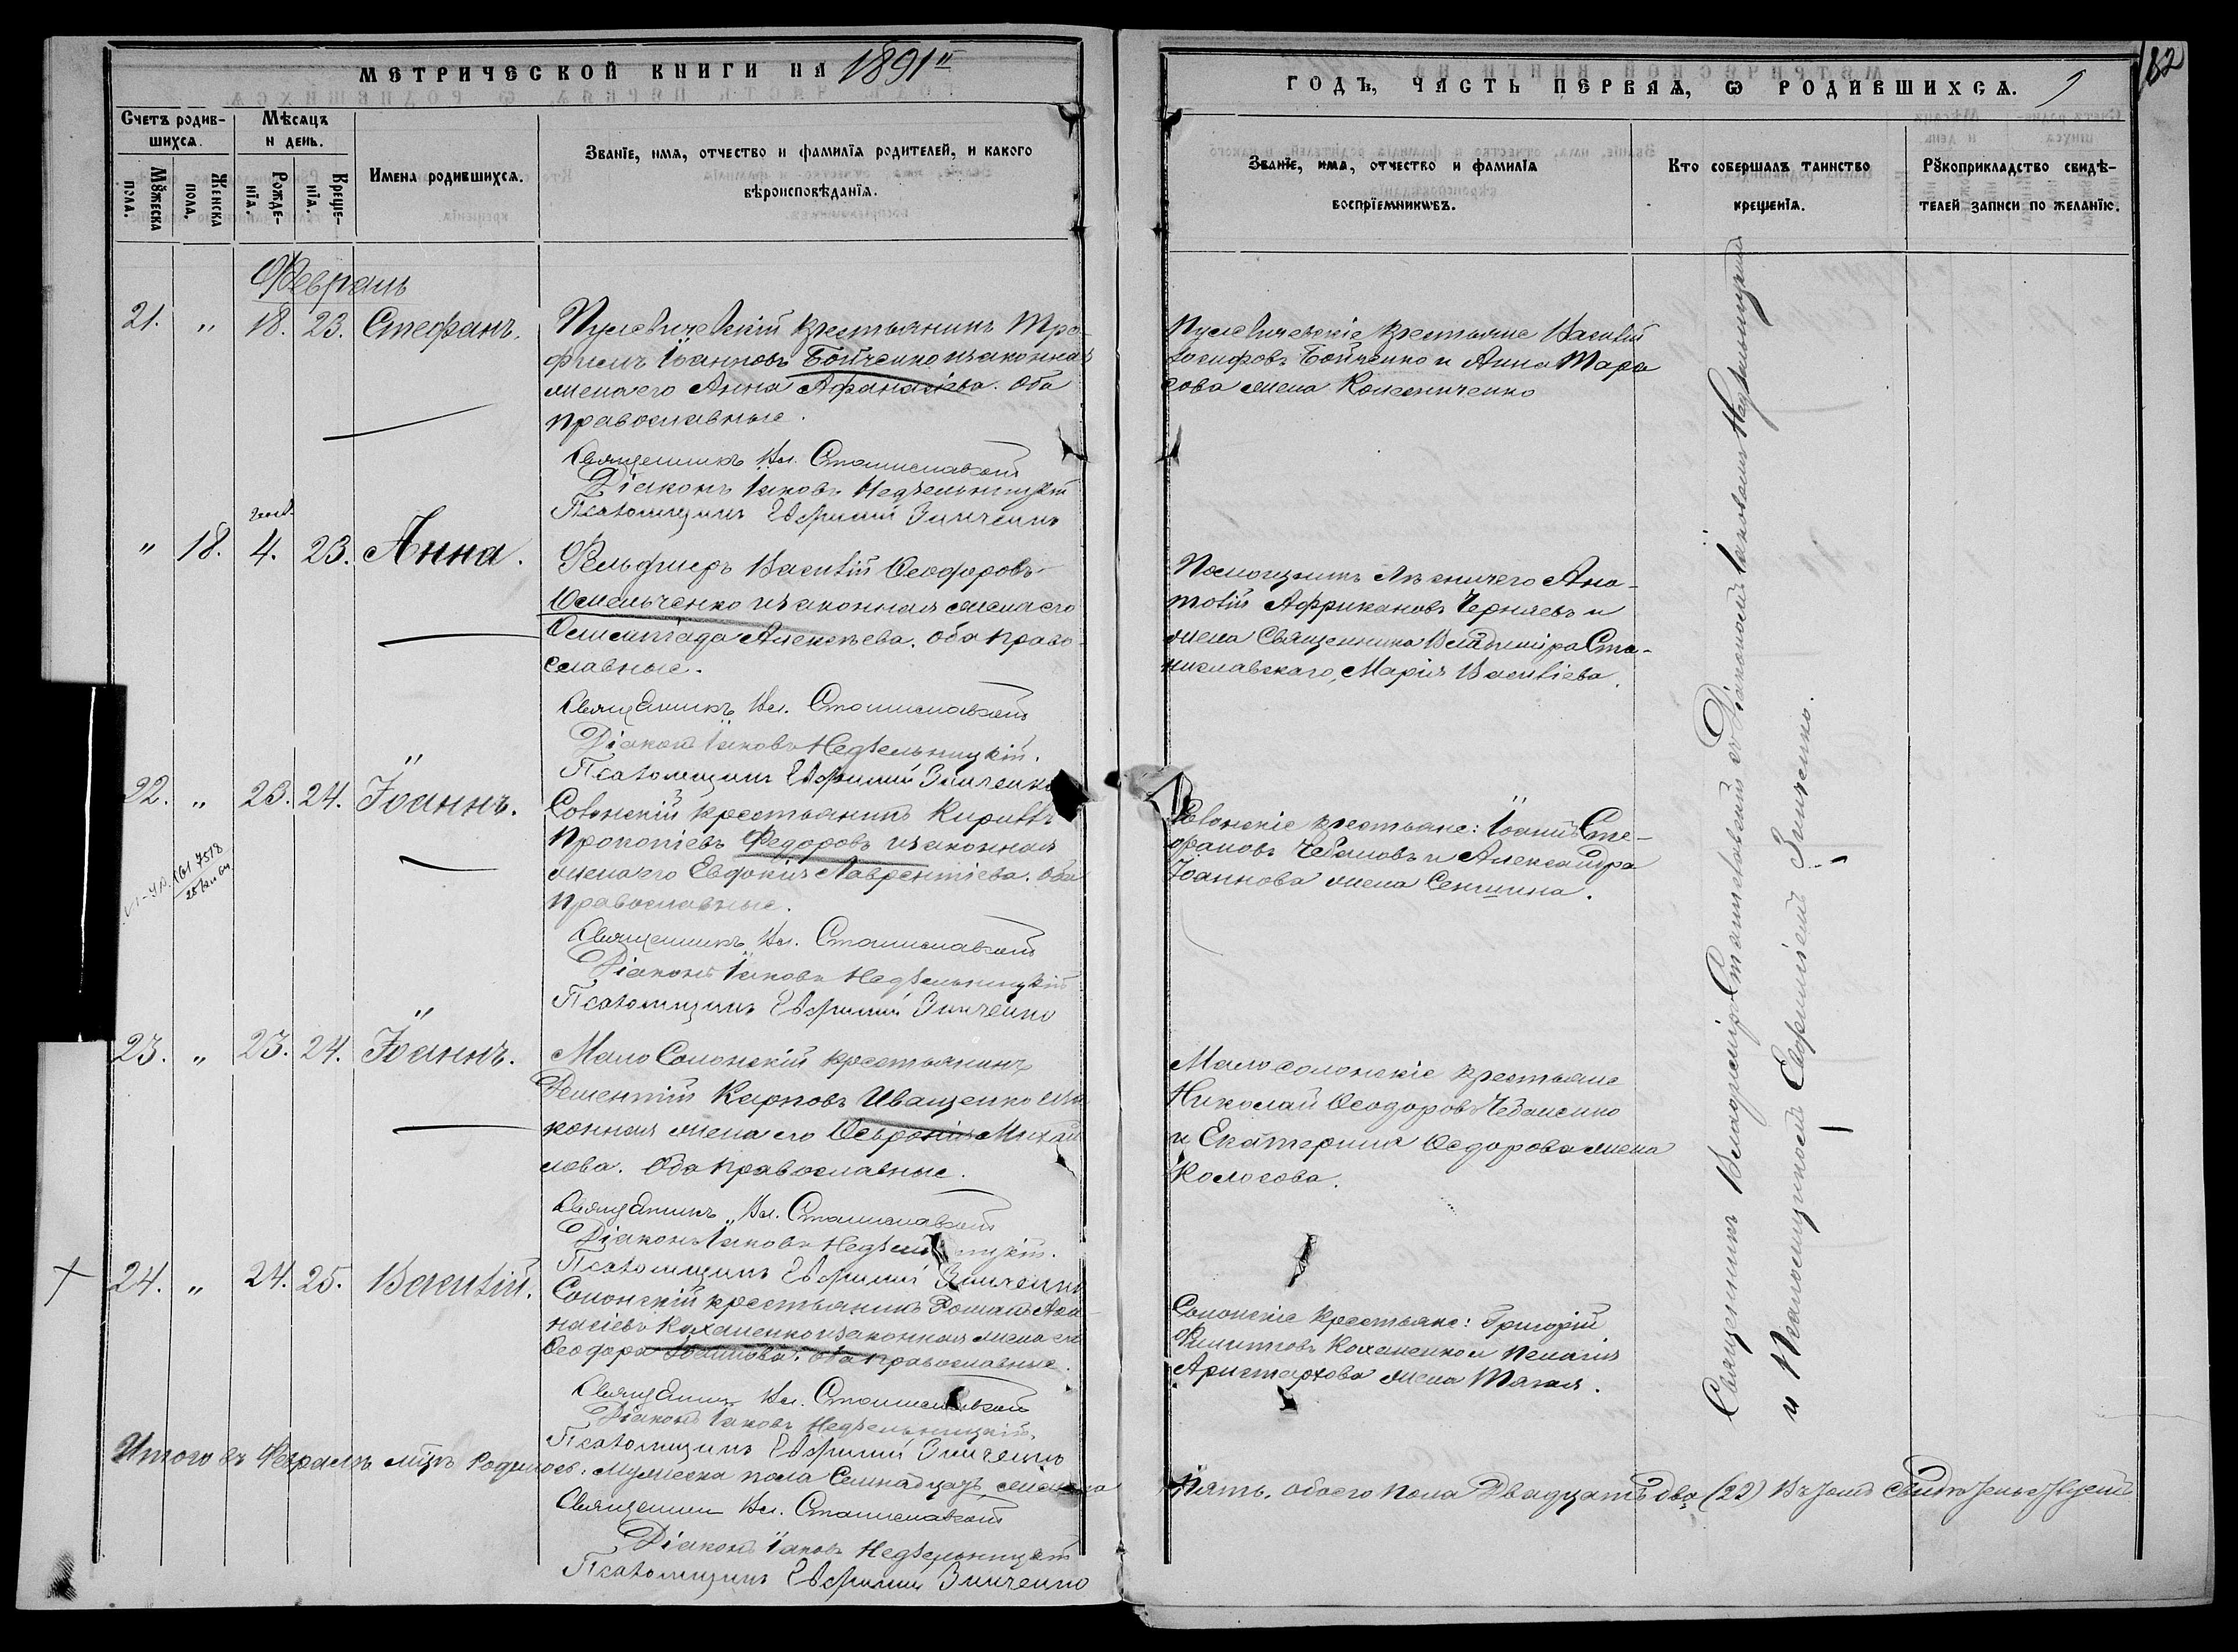 МЕТРИЧЕСКОЙ КНИГИ НА 1891й
ГОДЪ, ЧАСТЬ ПЕРВАЯ, Ѡ РОДИВШИХСЯ.
182
Счетъ родив-
шихся.
Мѣсяцъ
и день.
Мꙋжеска
пола.
Женска
пола.
Рожде-
нїя.
Креще-
нїя.
Имена родившихся.
Званїе, имя, отчество и фамилїя родителей, и какого
вѣроисповѣданїя.
Званїе, имя, отчество и фамилїя
воспрїемниковъ.
Кто совершалъ таинство
крещенїя.
Рꙋкоприкладство свидѣ-
телей записи по желанїю.
Февраль
21. " 18. 23. Стефанъ.
крестьянинъ Тро-
фимъ Іоанновъ Бойченко и законная
жена его Анна Афанасіева. Оба
православные.
Священникъ Вл. Станиславскій
Діаконъ Іаковъ Недѣльницкій
Псаломщикъ Евфимій Зинченко
крестьяне Василій
Іосифовъ Бойченко и Анна Тара
сова жена
" 18. 4. 23. Анна.
Фельдшеръ Василій Ѳеодоровъ
Омельченко и законная жена его
Алексѣева. Оба право-
славные.
Священникъ Вл. Станиславскій
Діаконъ Іаковъ Недѣльницкій.
Псаломщикъ Евфимій Зинченко
Помощникъ Лѣсничего Ана-
толій Африкановъ Черняевъ и
жена Священника Владиміра Ста-
ниславскаго, Марія Василіева.
22. " 23. 24. Іоаннъ.
Солонскій крестьянинъ Кириллъ
Прокопіевъ Федоровъ и законная
жена его Евдокія Лаврентіева. Оба
православные.
Священникъ Вл. Станиславскій
Діаконъ Іаковъ Недѣльницкій
Псаломщикъ Евфимій Зинченко
Солонскіе крестьяне: Іоаннъ Сте-
фановъ Чебановъ и Александра
Іоаннова жена Сеншина.
23. " 23. 24. Іоаннъ.
Мало Солонскій крестьянинъ
Дементій Карповъ Иващенко и за
конная жена его Михаи
лова. Оба православные.
Священникъ Вл. Станиславскій
Діаконъ Іаковъ Недѣльницкій.
Псаломщикъ Евфимій Зинченко
Мало солонскіе крестьяне
Николай Ѳеодоровъ
и Екатерина Ѳедорова жена
Колосова.
24. " 24. 25. Василій.
Солонскій крестьянинъ Романъ Афа
насіевъ Коханенко и законная жена его
Ѳеодора Іоаннова. Оба православные.
Священникъ Вл. Станиславскій
Діаконъ Іаковъ Недѣльницкій.
Псаломщикъ Евфимій Зинченко
Солонскіе крестьяне: Григорій
Филипповъ Коханенко и Пелагія
Аристархова жена
Священникъ Владиміръ Станиславскій съ Діакономъ Іаковомъ Недѣльницкимъ
и Псаломщикомъ Евфиміемъ Зинченко.
Итого въ Февралѣ мцѣ родилось: мужеска пола Семнадцать, женска
Пять, обоего пола Двадцать два (22) Въ томъ
Священникъ Вл. Станиславскій
Діаконъ Іаковъ Недѣльницкій
Псаломщикъ Евфимій Зинченко